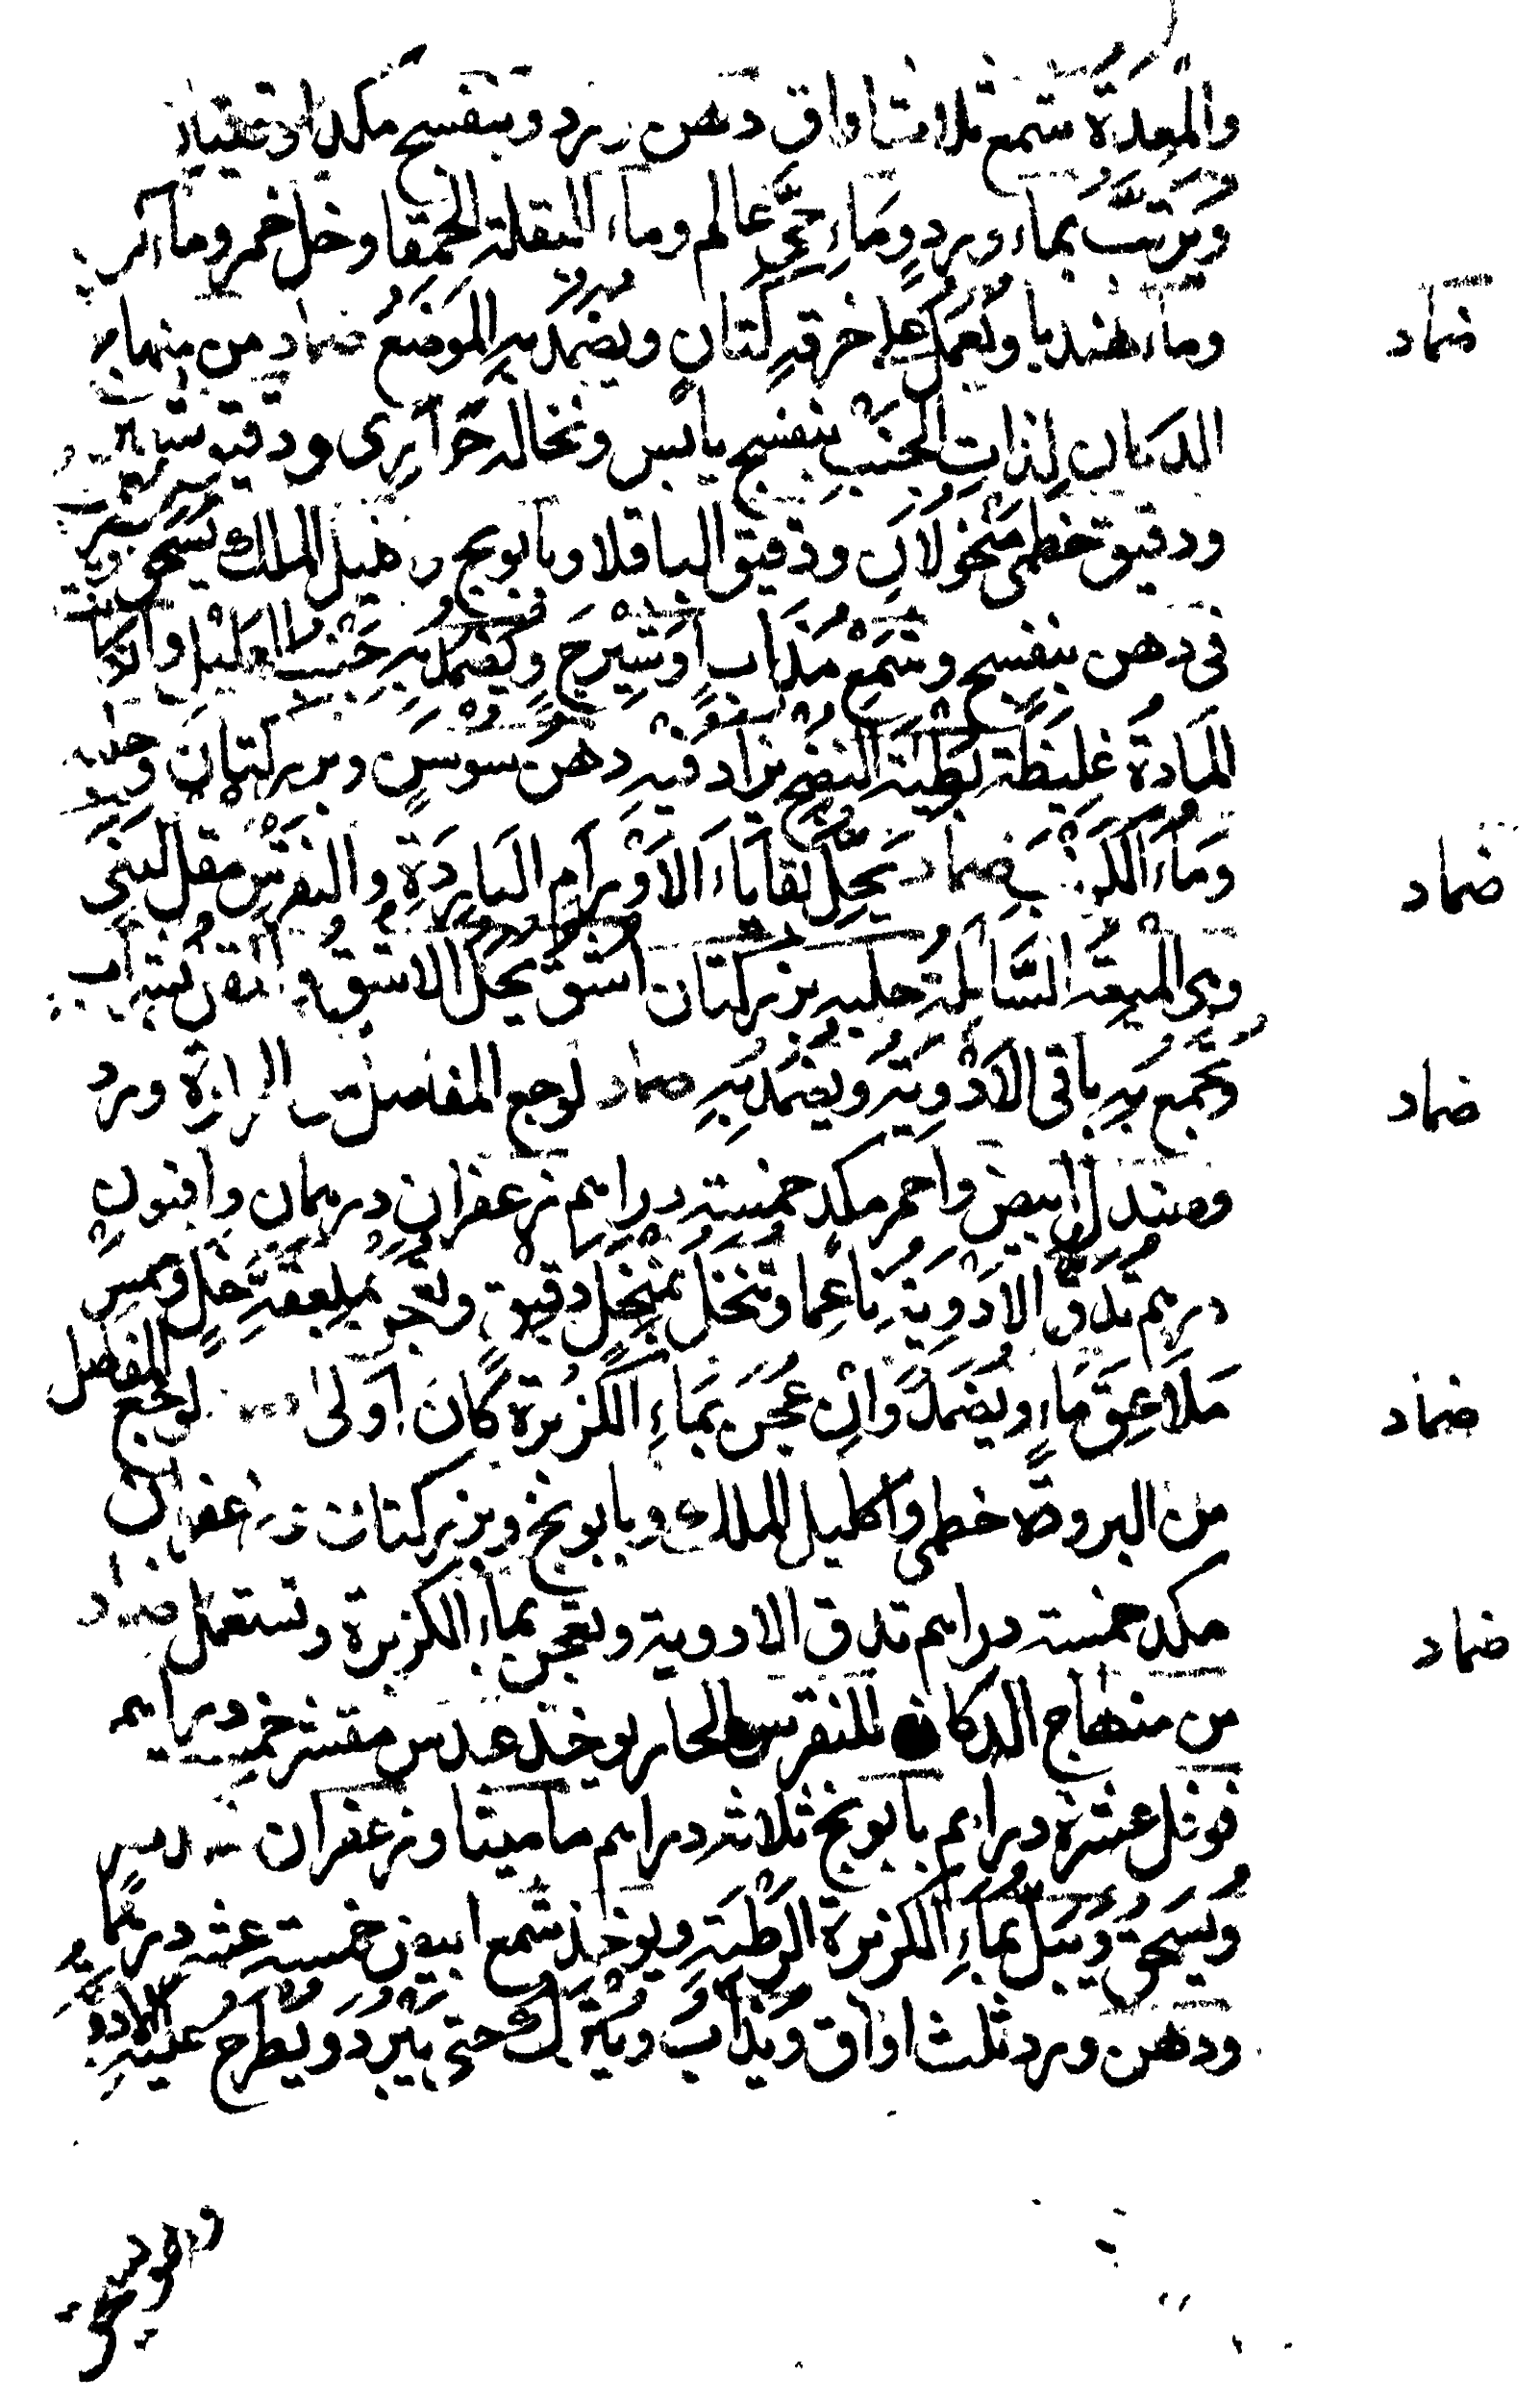 والمعِدَة شمع ثلاث اواق دهن ورد وبنفسج مكد اوقيتان
وَيُرَتَّبُ بماء وردٍ وَمَاءِ حَيّ عالم وماء البقلة الحمقا وخل خمر وماء
وماء هندبا ويُعمَل على خرقة كتانٍ ويضمد به الموضع ضماد من منهاج
الدكان لِذاتِ الجنبِ بنفسج يابس ونخالة حُوّارى ودقيق شعير
ودقيق خطمى منخولان ودقيق الباقلا وبابونج واكليل الملك يسحق
فى دهن بنفسج وشمع مُذَابٍ اوشَيْرجٍ ويضمد به جَنب العليل وان كانت
المَادة غليظة بَطيّة النضج يزاد فيه دهن سَوْسَن وبزر كتان وحلبه
وَمَاء الكرنب ضماد يحلّ بقاياء الاَوْرام البَارِدَةِ والنقرس مقل لبنى
وهى الميعة السَّائلة حلبه بزر كتان اُشق يحل الاشق والمقل بشراب
وتجمع به باقى الاَدْويَة ويضمد به ضماد لوجع المفاصل من الحرارة ورد
وصندل ابيض واحمر مكد خمسة دراهم زعفران درهمان وافيون
درهم تدق الادوية ناعما وتنخل بمنخل دقيق وتعجن بملعقة خل وخمس
مَلاَعِقَ مَاءٍ ويُضَمد وَانِ عُجنَ بمَاءِ الكزبرة كَانَ اولى لوجع المفاصل
من البرودة خطمى واكليل الملك وبابونج وبزر كتان وزعفران
مكد خمسة دراهم تدق الادوية وتعجن بماء الكزبرة وتستعمل ضماد
من منهاج الدكان للنقرس الحار يوخذ عدس مقشر خمسة دراهم
فوفل عشرة دراهم بابونج ثلاثة دراهم ماميثا وزعفران
ويُسَحق ويُبَلّ بماءِ الكزبرة الرَّطبَة ويوخذ شمع ابيض خمسة عشر درهمًا
ودهن ورد ثلث اواق وَيُذَابُ ويُتْرَك حتى يَبْرُدَ ويُطرَحُ عليه الادوية
ضماد
ضماد
ضماد
ضماد
ضماد